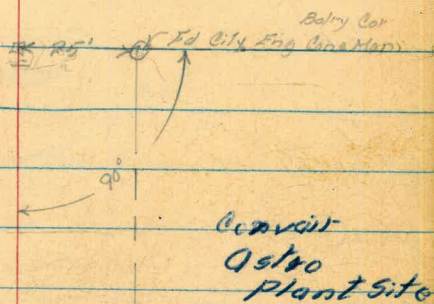 Bdry Cor
25' Fd City Eng Conc Mon
90°
Convair
Astro
Plant Site